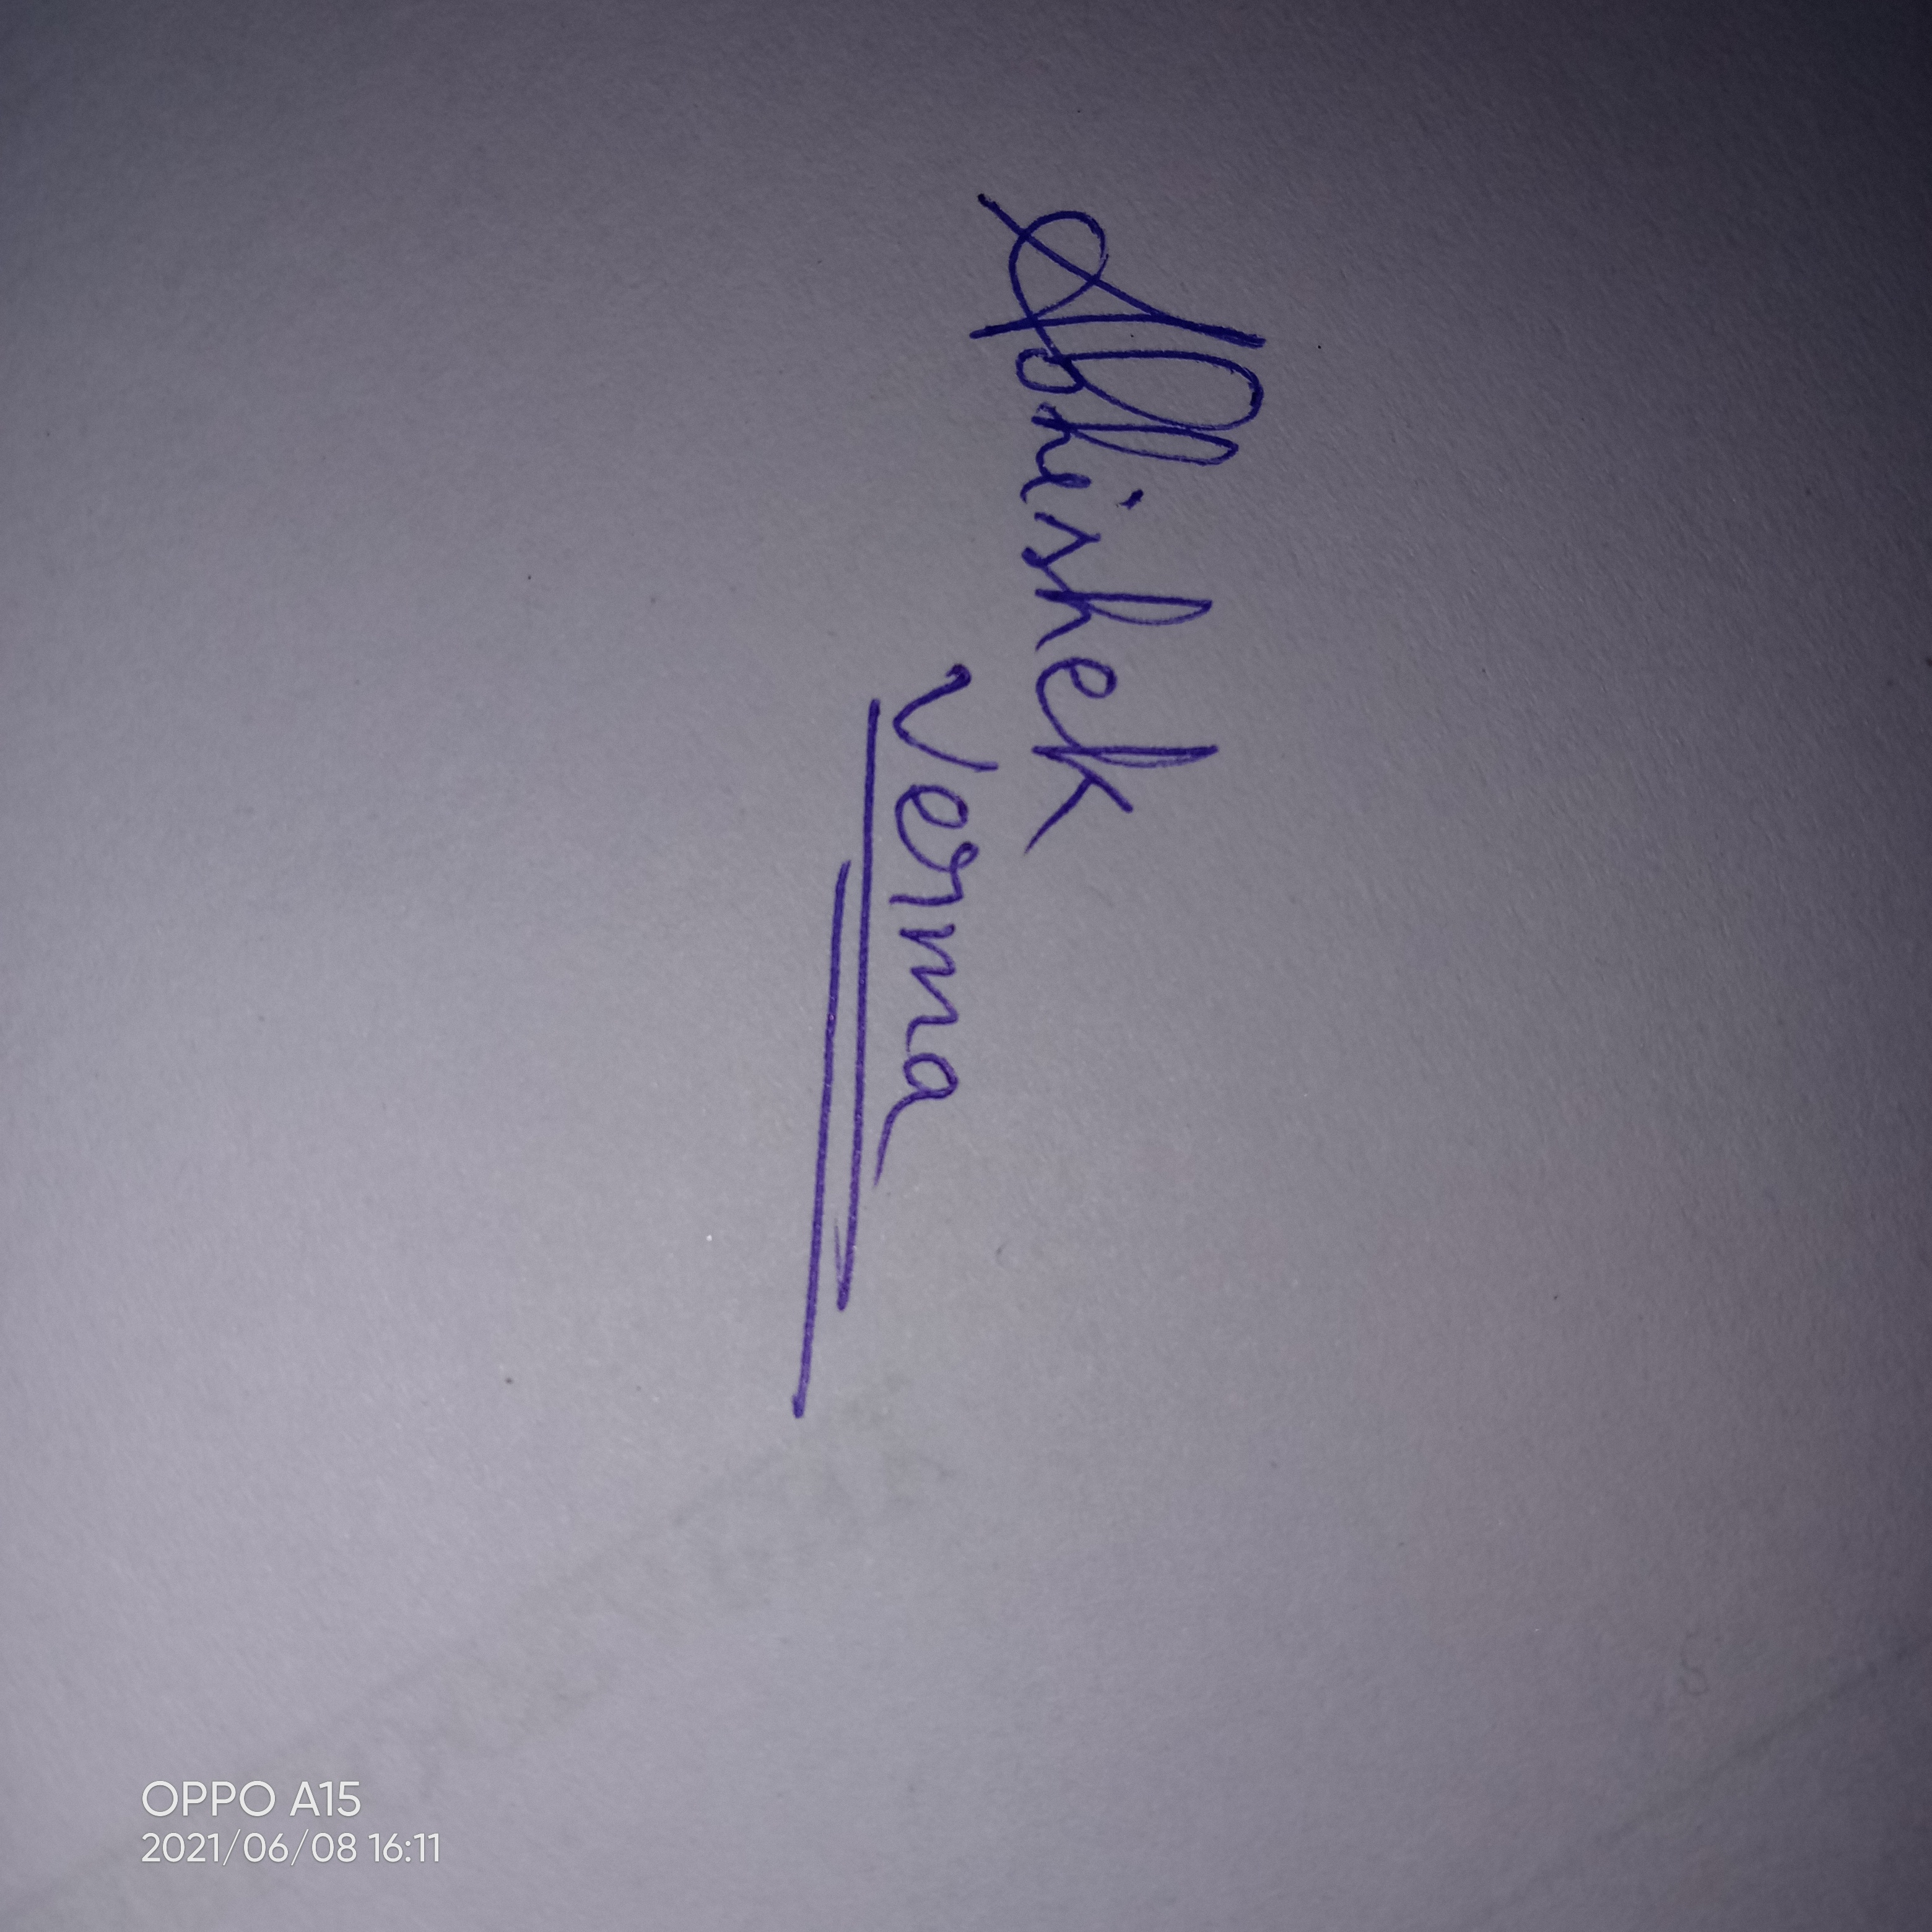 Abhishek
Verma
OPPO A15
2021/06/08 16:11